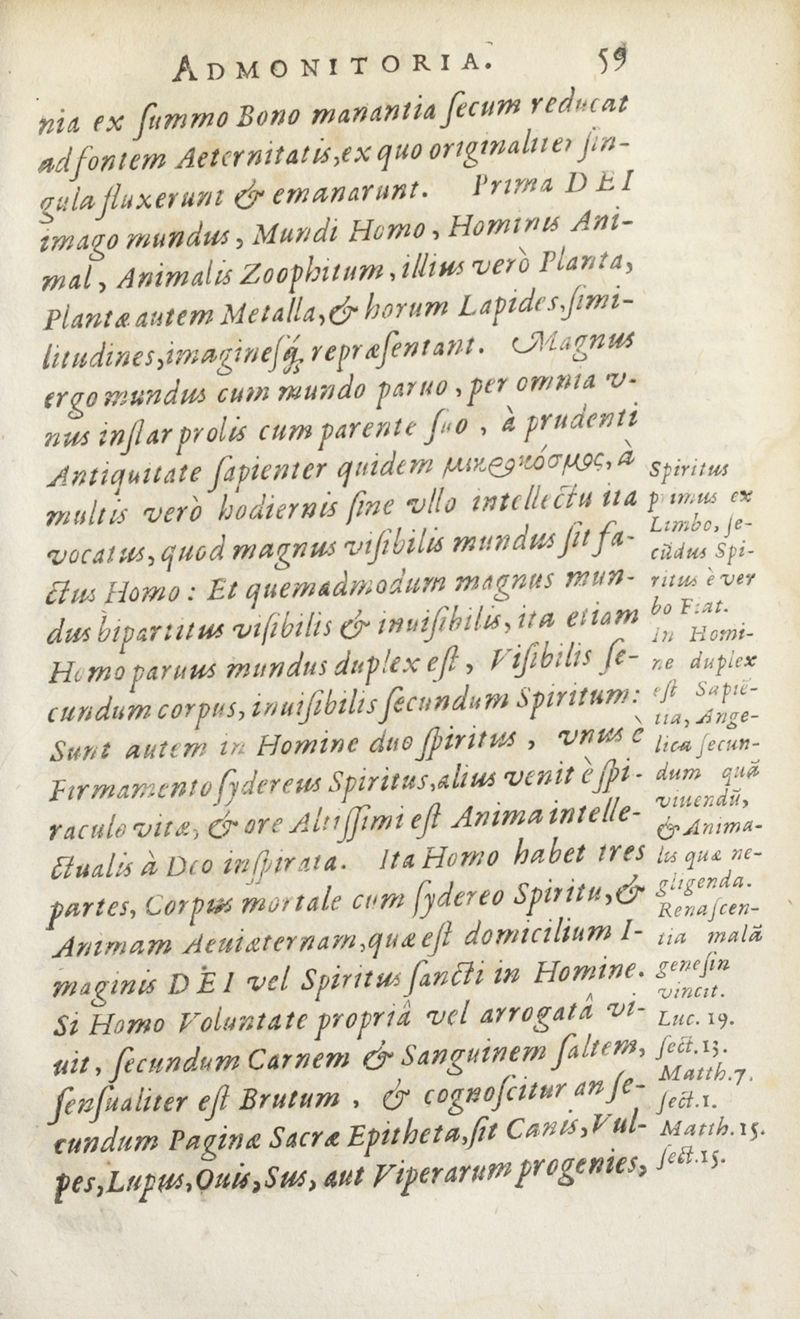 ADMONITORIA. 59
nia ex ſummo Bono manantia ſecum reducat
ad fontem Aeternitatis, ex quo originaliter ſin-
gula fluxerunt & emanarunt. Prima DEI
imago mundus, Mundi Homo, Hominis Ani-
mal, Animalis Zoophitum, illius verò Planta,
Plantæ autem Metalla, & horum Lapides ſimi-
litudines, imagineſq́; repræſentant. Magnus
ergo mundus cum mundo paruo, per omnia v-
nus inſtar prolis cum parente ſuo, à prudenti
Antiquitate ſapienter quidem μικρόκόσμος, à
multis verò hodiernis ſine vllo intellectu ita
vocatus, quod magnus viſibilis mundus ſit fa-
ctus Homo: Et quemadmodum magnus mun-
dus bipartitus viſibilis & inuiſibilis, ita etiam
Homo paruus mundus duplex eſt, Viſibilis ſe-
cundum corpus, inuiſibilis ſecundum Spiritum:
Sunt autem in Homine duo ſpiritus, vnus è
Firmamento ſydereus Spiritus, alius venit è ſpi-
raculo vitæ, & ore Altiſſimi eſt Anima intelle-
ctualis à Deo inſpirata. Ita Homo habet tres
partes, Corpus mortale cum ſydereo Spiritu, &
Animam Aeuiæternam, quæ eſt domicilium I-
maginis DEI vel Spiritus ſancti in Homine.
Si Homo Voluntate propriâ vel arrogatâ vi-
uit, ſecundum Carnem & Sanguinem ſaltem,
ſenſualiter eſt Brutum, & cognoſcitur an ſe-
cundum Paginæ Sacræ Epitheta, ſit Canis, Vul-
pes, Lupus, Ouis, Sus, aut Viperarum progenies,
Spiritus
primus ex
Limbo, ſe-
cūdus Spi-
ritus è ver
bo Fiat.
In Homi-
ne duplex
eſt Sapiē-
tia, Ange-
lica ſecun-
dum quā
viuendū,
& Anima-
lis quæ ne-
gligenda.
Renaſcen-
tia malā
geneſin
vincit.
Luc. 19.
ſect. 13.
Matth. 7.
ſect. 1.
Matth. 15.
ſect. 15.